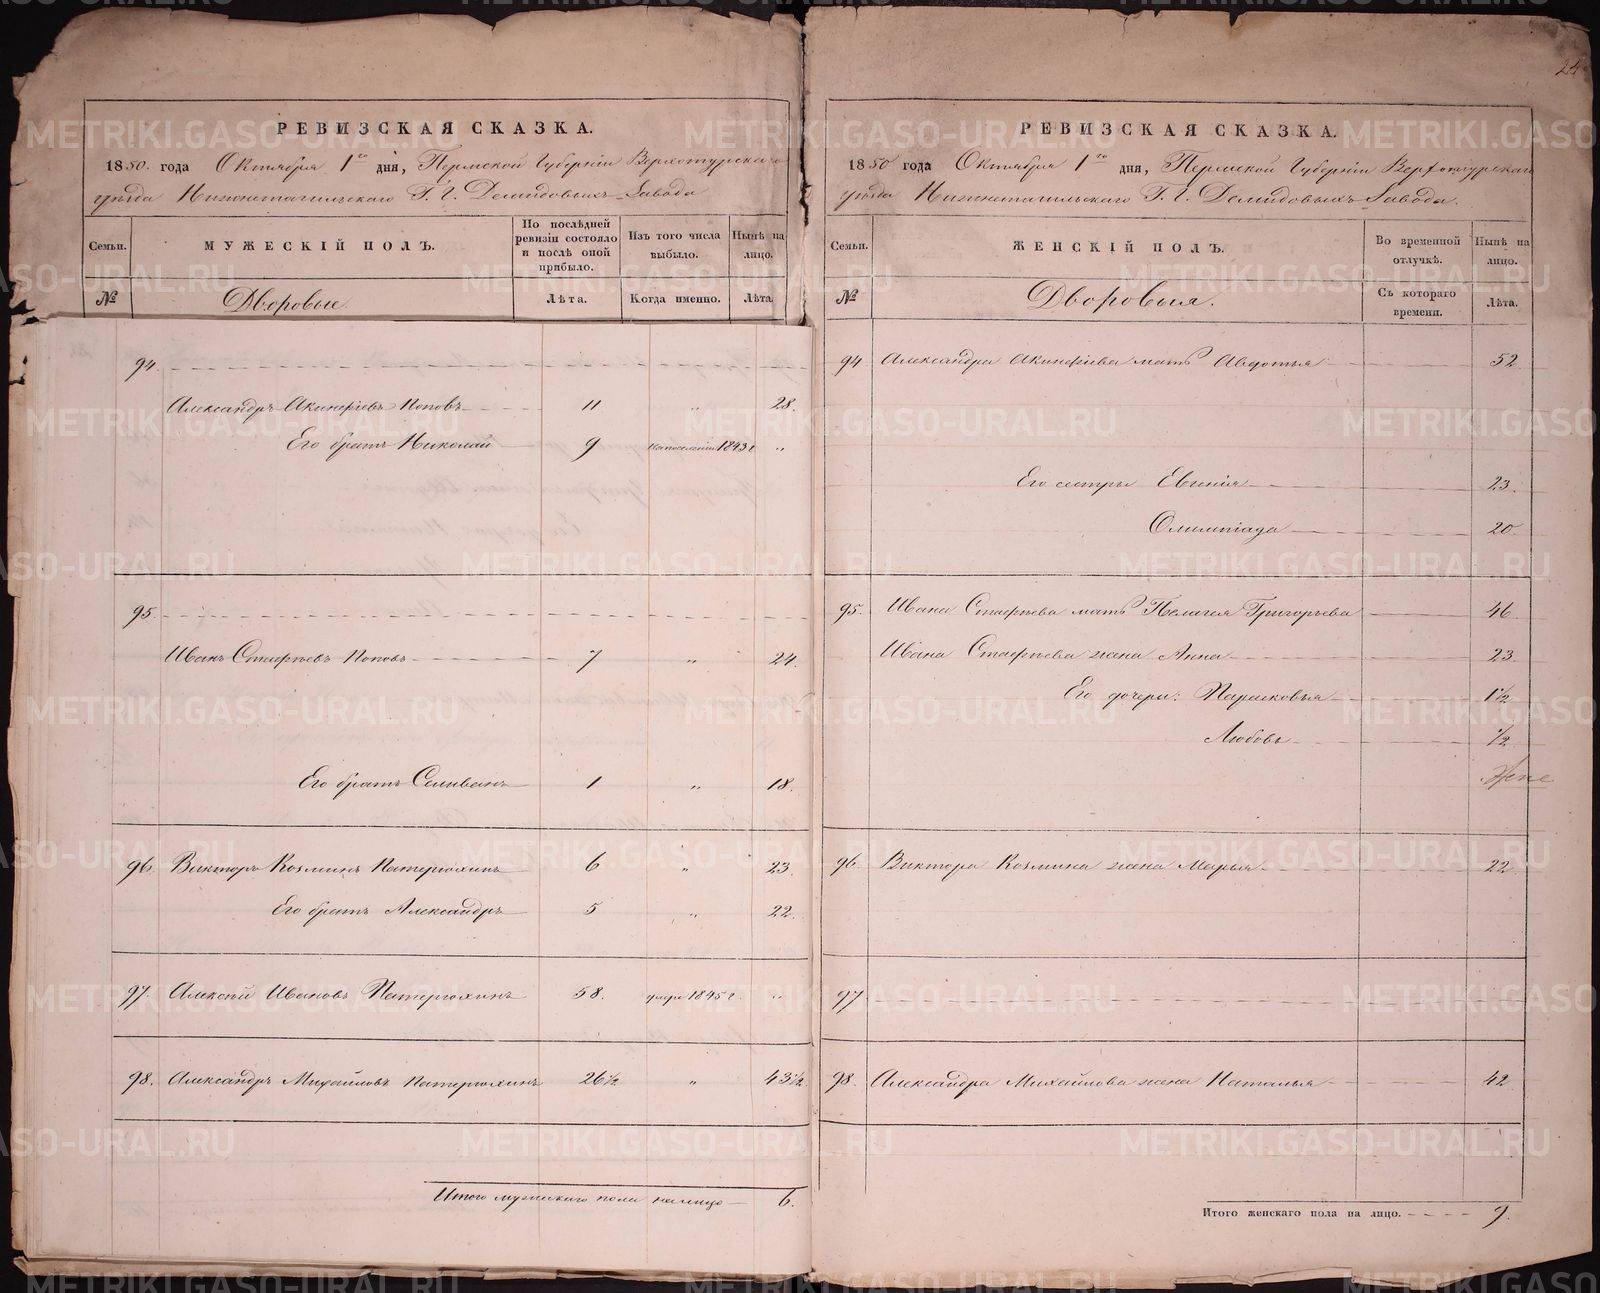 24
РЕВИЗСКАЯ СКАЗКА.
1850. года Октября 1го дня, Пермской Губерніи Верхотурскаго
уѣзда Нижнетагильскаго Г. Г. Демидовыхъ Завода
Семьи.
МУЖЕСКІЙ ПОЛЪ.
По послѣдней ревизіи состояло и послѣ оной прибыло.
Изъ того числа выбыло.
Нынѣ на лицо.
№
Дворовые.
Лѣта.
Когда именно.
Лѣта
94.
Александръ Акинфіевъ Поповъ 11 " 28.
Его братъ Николай 9 на поселеніи 1843 г "
95.
Иванъ Стафѣевъ Поповъ 7 " 24.
Его братъ Селиванъ 1 " 18.
96. Викторъ Козминъ Патерюхинъ 6 " 23.
Его братъ Александръ 5 " 22.
97. Алексѣй Ивановъ Патерюхинъ 58. умре 1845 г. "
98. Александръ Михайловъ Патерюхинъ 26½ " 43½
Итого мужескаго пола на лицо 6.
РЕВИЗСКАЯ СКАЗКА.
1850 года Октября 1го дня, Пермской Губерніи Верхотурскаго
уѣзда Нижнетагильскаго Г. Г. Демидовыхъ Завода.
Семьи.
ЖЕНСКІЙ ПОЛЪ.
Во временной отлучкѣ.
Нынѣ на лицо.
№
Дворовыя.
Съ котораго времени.
Лѣта.
94 Александра Акинфіева мать Авдотья 52
Его сестры Евгенія 23.
Олимпіада 20
95. Ивана Стафѣева мать Пелагея Григорьева 46
Ивана Стафѣева жена Анна 23.
Его дочери: Парасковья 1½
Любовь ½
96. Виктора Козмина жена Марья 22
97
98. Александра Михайлова жена Наталья 42
Итого женскаго пола на лицо. 9.
METRIKI.GASO-URAL.RU